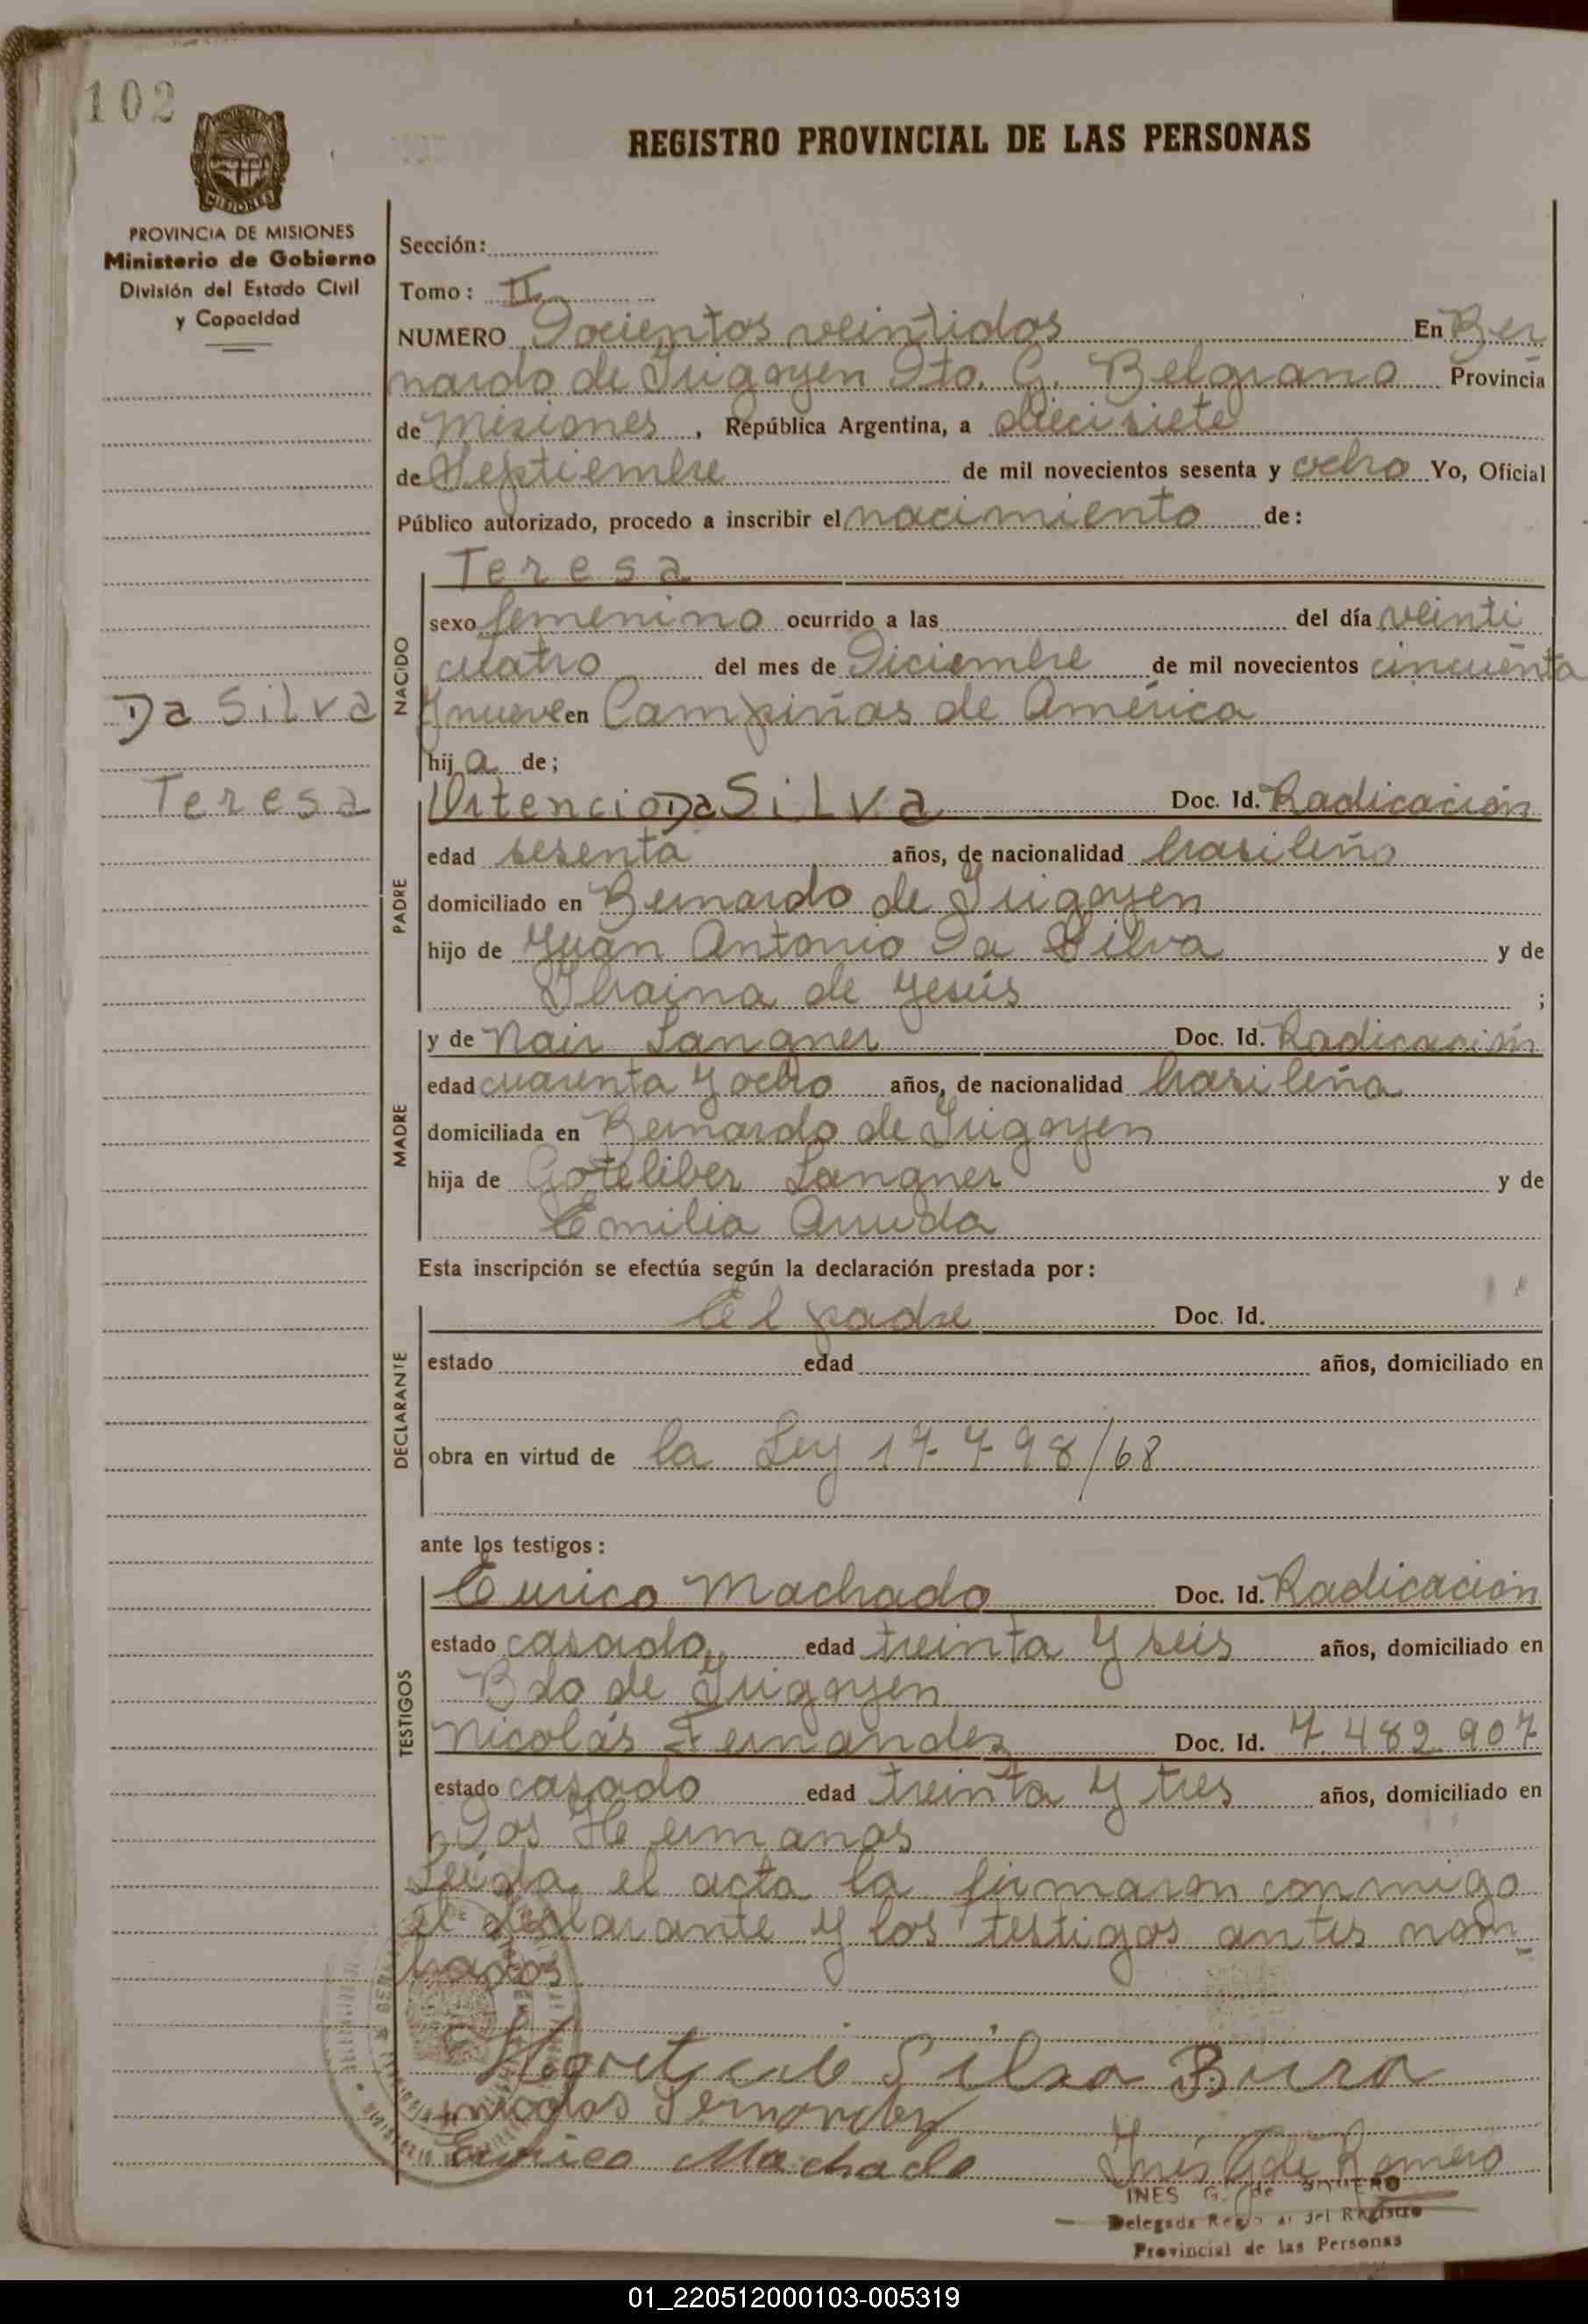 102
REGISTRO PROVINCIAL DE LAS PERSONAS
MISIONES
PROVINCIA DE MISIONES
Ministerio de Gobierno
División del Estado Civil
y Capacidad
Sección:
Tomo: II
NUMERO Docientos veintidos En Ber
nardo de Irigoyen Dto. G. Belgrano Provincia
de Misiones, República Argentina, a diecisiete
de Septiembre de mil novecientos sesenta y ocho Yo, Oficial
Público autorizado, procedo a inscribir el nacimiento de:
NACIDO
Teresa
sexo femenino ocurrido a las del día veinti
cuatro del mes de Diciembre de mil novecientos cincuenta
y nueve en Campiñas de América
hija de;
Da Silva
Teresa
PADRE
Ortencio Da Silva Doc. Id. Radicación
edad sesenta años, de nacionalidad brasileño
domiciliado en Bernardo de Irigoyen
hijo de Juan Antonio Da Silva y de
de Jesús ;
MADRE
y de Nair Langner Doc. Id. Radicación
edad cuarenta y ocho años, de nacionalidad brasileña
domiciliada en Bernardo de Irigoyen
hija de Goteliber Langner y de
Emilia Arruda
Esta inscripción se efectúa según la declaración prestada por:
DECLARANTE
El padre Doc. Id.
estado edad años, domiciliado en
obra en virtud de la Ley 17.798/68
ante los testigos:
TESTIGOS
Eurico Machado Doc. Id. Radicación
estado casado edad treinta y seis años, domiciliado en
Bdo de Irigoyen
Nicolás Fernandez Doc. Id. 7.482.907
estado casado edad treinta y tres años, domiciliado en
Dos Hermanas
Leida el acta la firmaron conmigo
el declarante y los testigos antes nom-
brados
Silva
Nicolas Fernandez
Eurico Machado
Inés G de Romero
INES G. de ROMERO
Delegada Regional del Registro
Provincial de las Personas
01_220512000103-005319